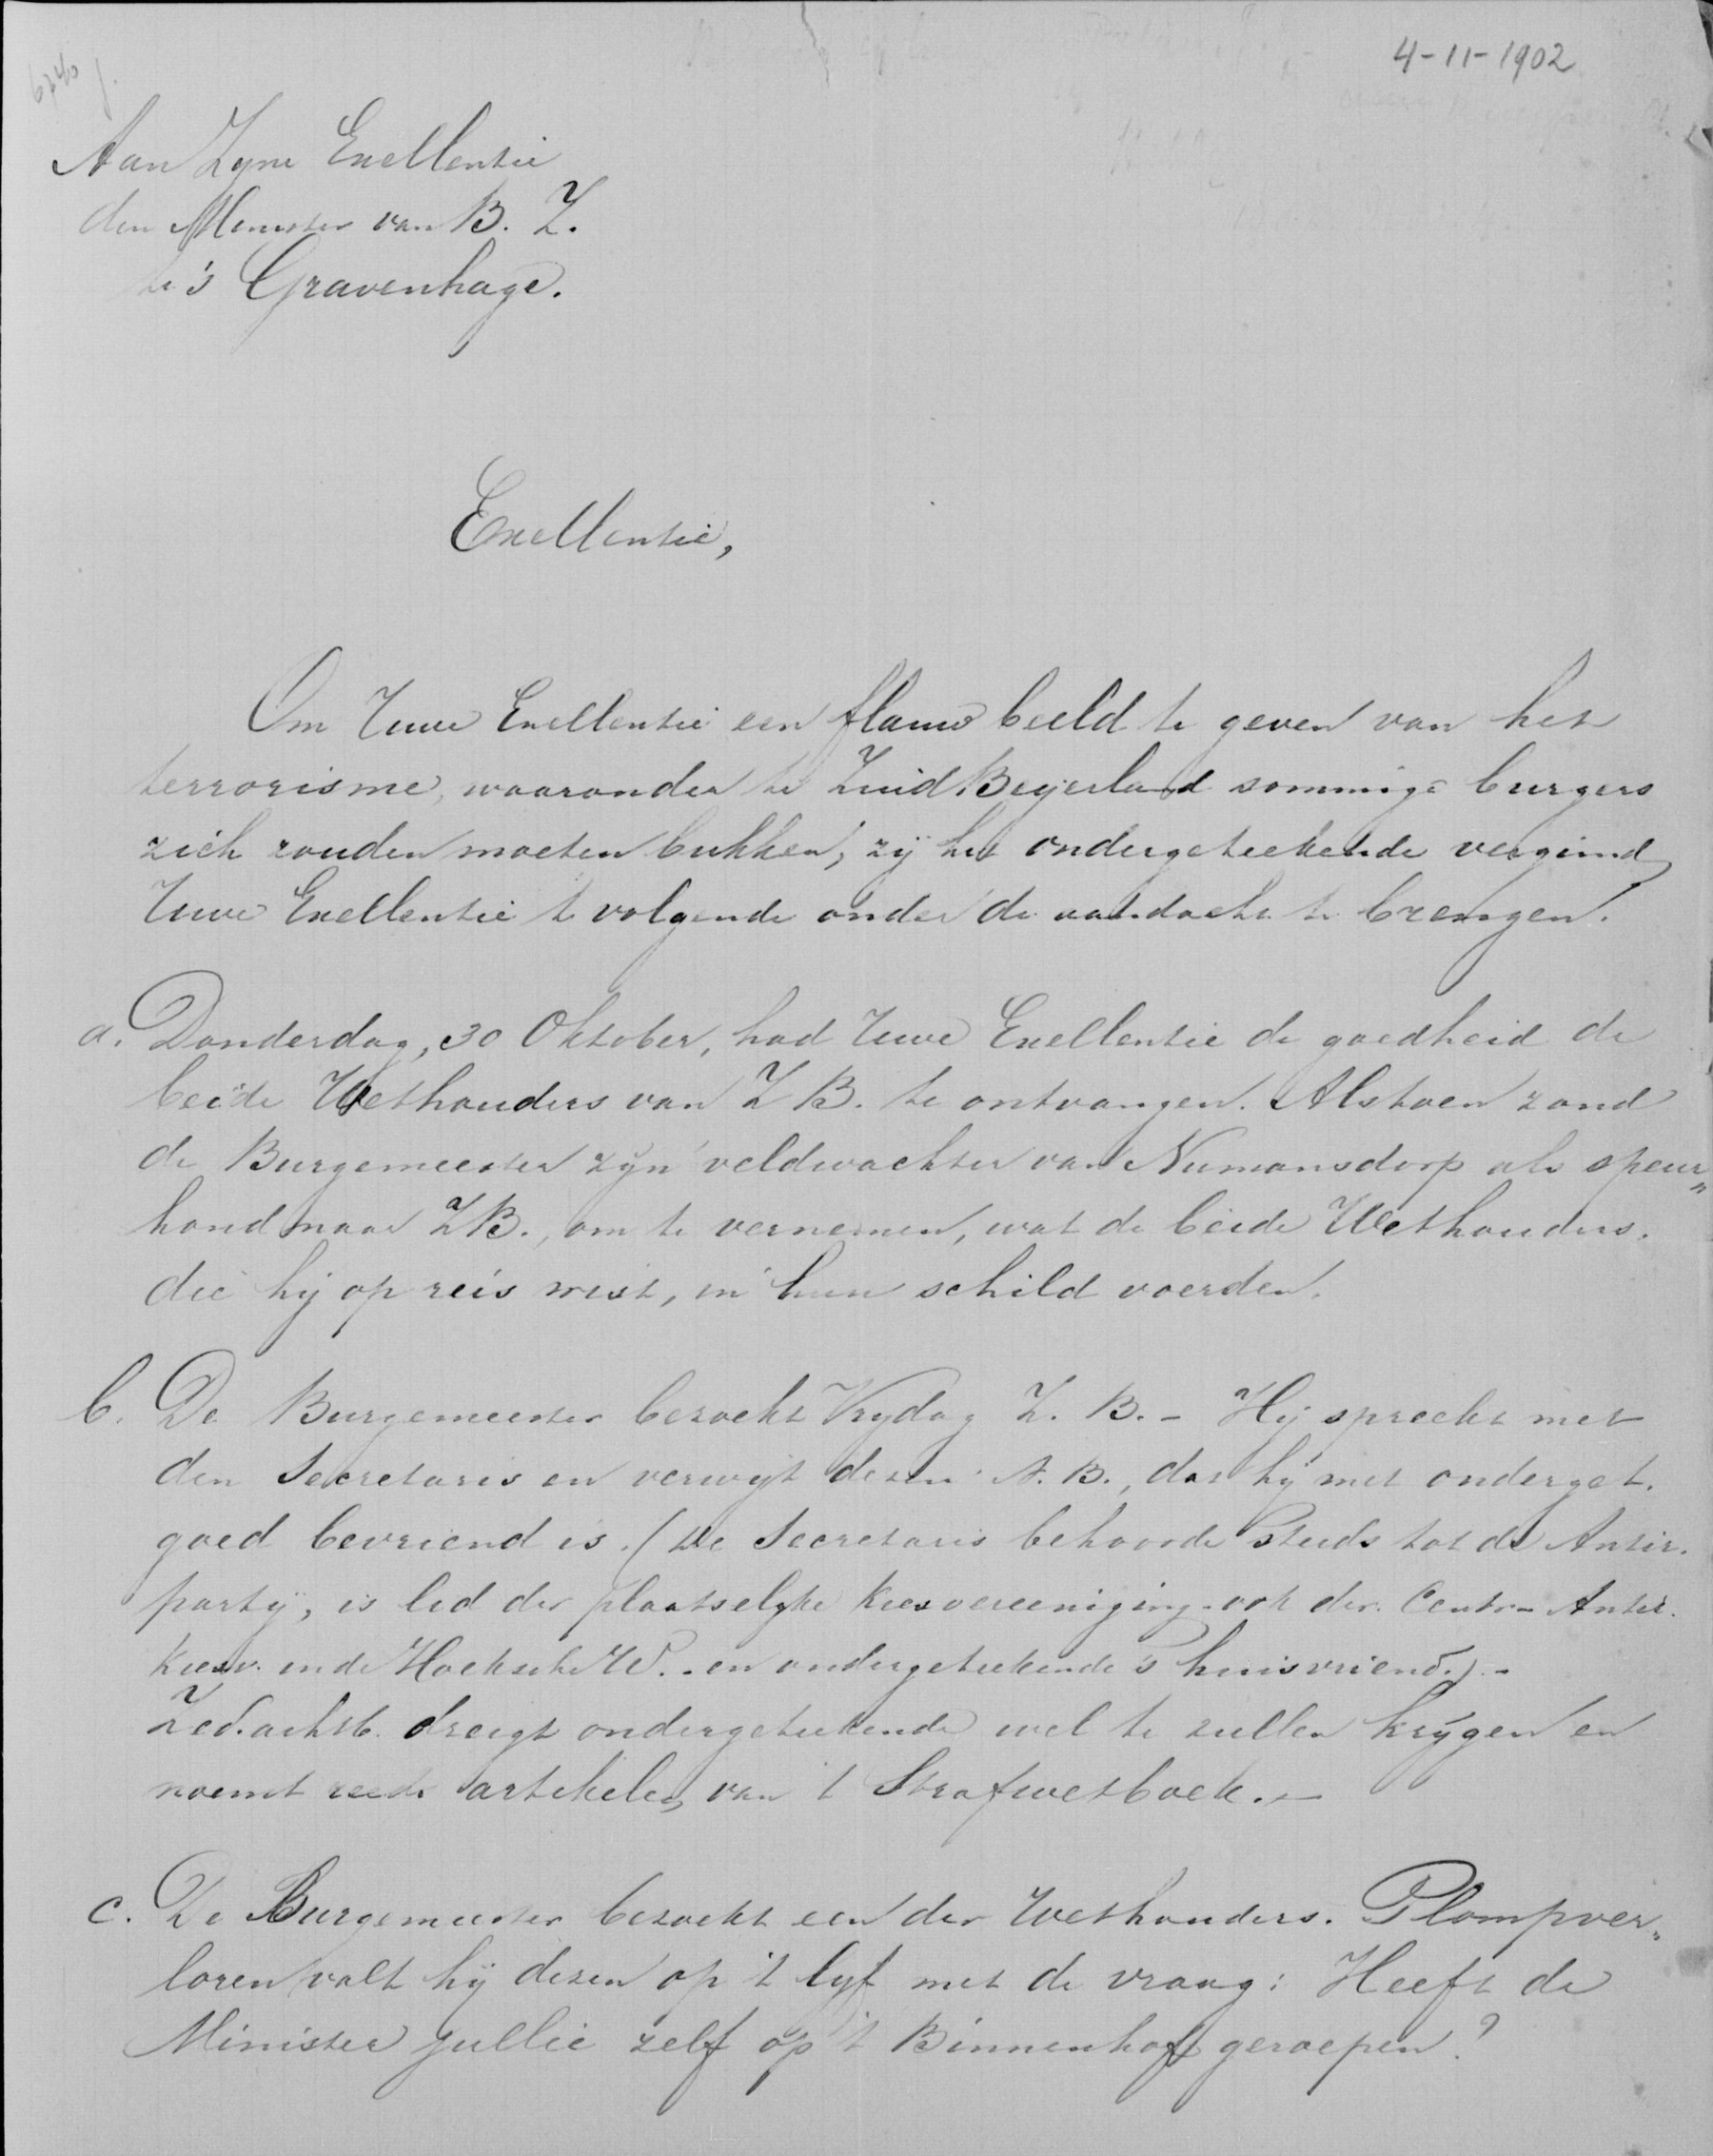 4-11-1902
Aan Zyne Exellentie
den Minister van B. Z.
te 's Gravenhage.
Exellentie,
Om Uwe Exellentie een flauw beeld te geven van het
terrorisme, waaronder te Zuid Beyerland sommige burgers
zich zouden moeten bukken, zij het ondergeteekende vergund
Uwe Exellentie 't volgende onder de aandacht te brengen.
a. Donderdag, 30 Oktober, had Uwe Exellentie de goedheid de
beide Wethouders van Z B. te ontvangen. Alstoen zond
de Burgemeester zijn veldwachter van Numansdorp als speur„
hond naar ZB., om te vernemen, wat de beide Wethouders,
die hij op reis wist, in hun schild voerden.
b. De Burgemeester bezocht Vrydag Z. B. - Hij spreekt met
den Secretaris en verwijt dezen N. B., dat hij met onderget.
goed bevriend is. (De Secretaris behoorde steeds tot de Antir.
partij, is lid der plaatselyke Kiesvereeniging ook der Centr- Antir.
Kiesv. in de Hoeksche W. - en ondergeteekende's huisvriend.) -
Zed.achtb. dreigt ondergeteekende wel te zullen krijgen en
noemt reeds artikelen van 't Strafwetboek. -
c. De Burgemeester bezoekt een der Wethouders. Plompver„
loren valt hij dezen op 't lijf met de vraag: Heeft de
Minister jullie zelf op 't Binnenhof geroepen?